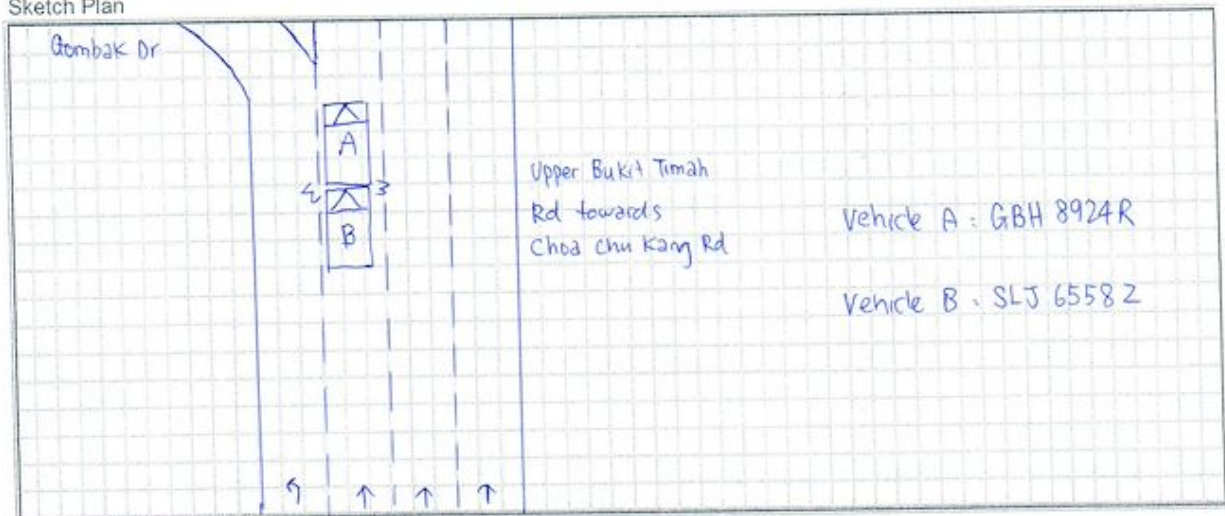 Sketch Plan
Gombak Dr
A
B
Upper Bukit Timah
Rd towards
Choa Chu Kang Rd
Vehicle A : GBH 8924R
Vehicle B : SLJ 6558Z